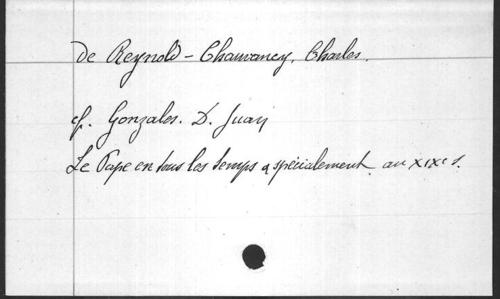 de Reynold - Chauvancy, Charles.
cf. Gonzales. D. Juan
Le Pape en tous les temps & spécialement au XIXe s.